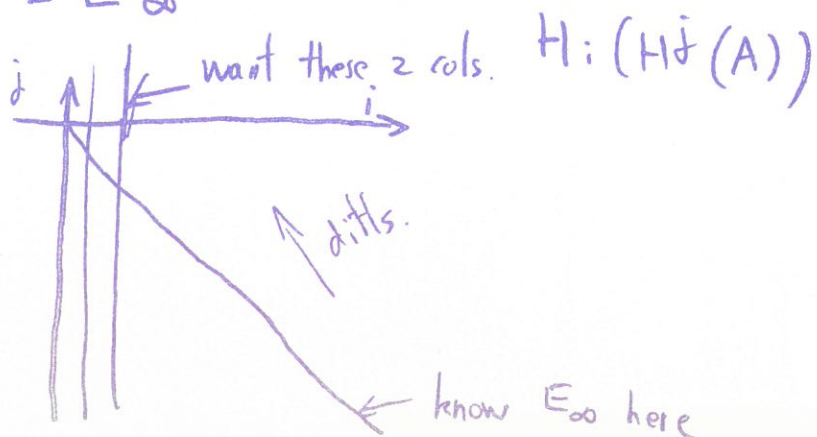 want these 2 cols. H_i(H^j(A))
j
i
diffs.
know E_∞ here